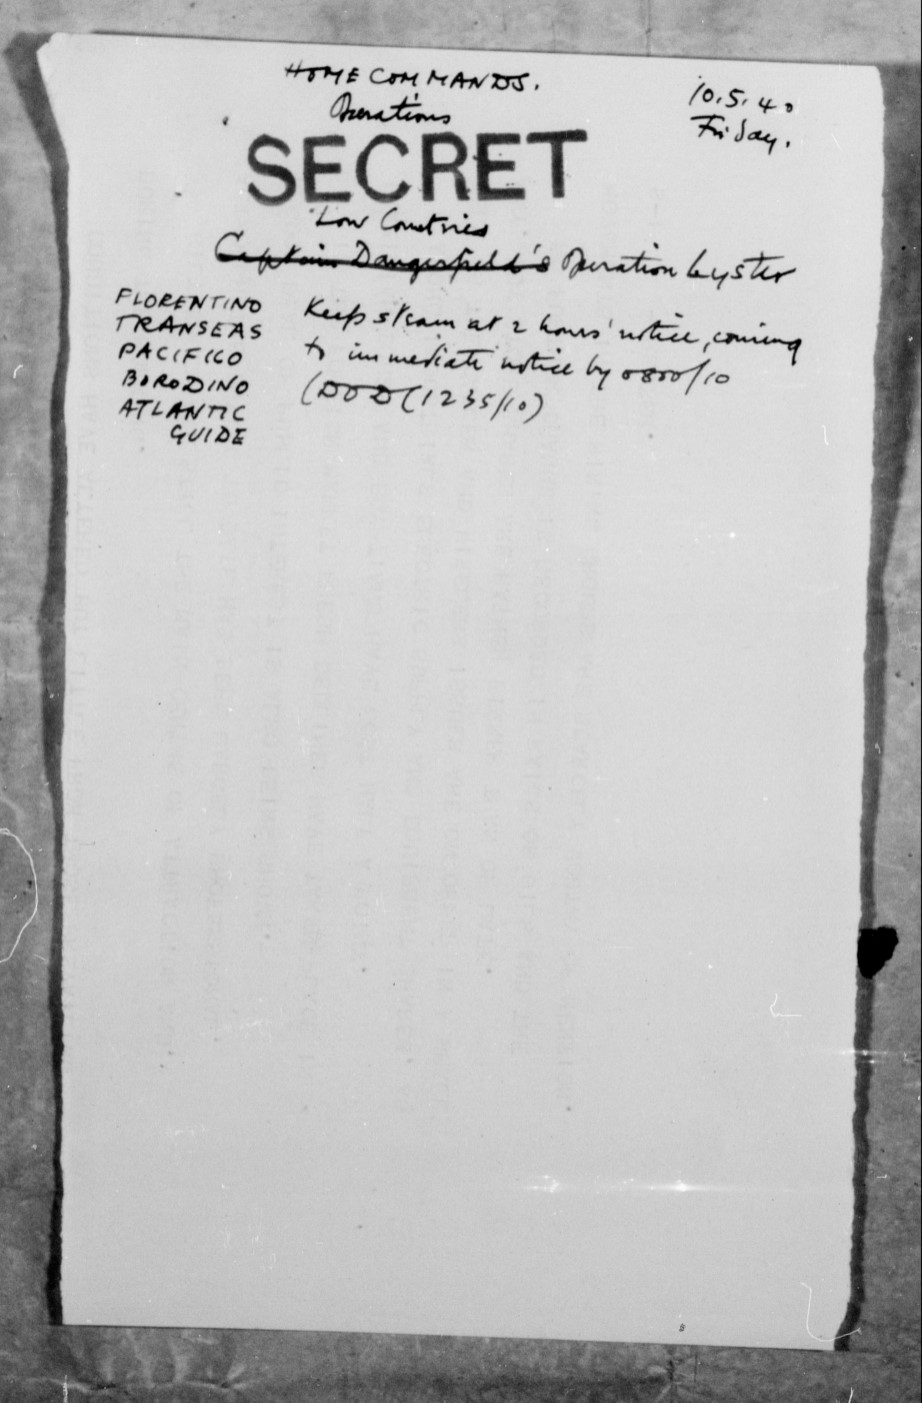 HOME COMMANDS.
Operations
10.5.40
Friday.
SECRET
Low Countries
Captain Dangerfield's Operation Lyster
FLORENTINO
TRANSEAS
PACIFICO
BORODINO
ATLANTIC
GUIDE
Keep steam at 2 hours' notice, coming
to immediate notice by 0800/10
(DOD(1235/10)